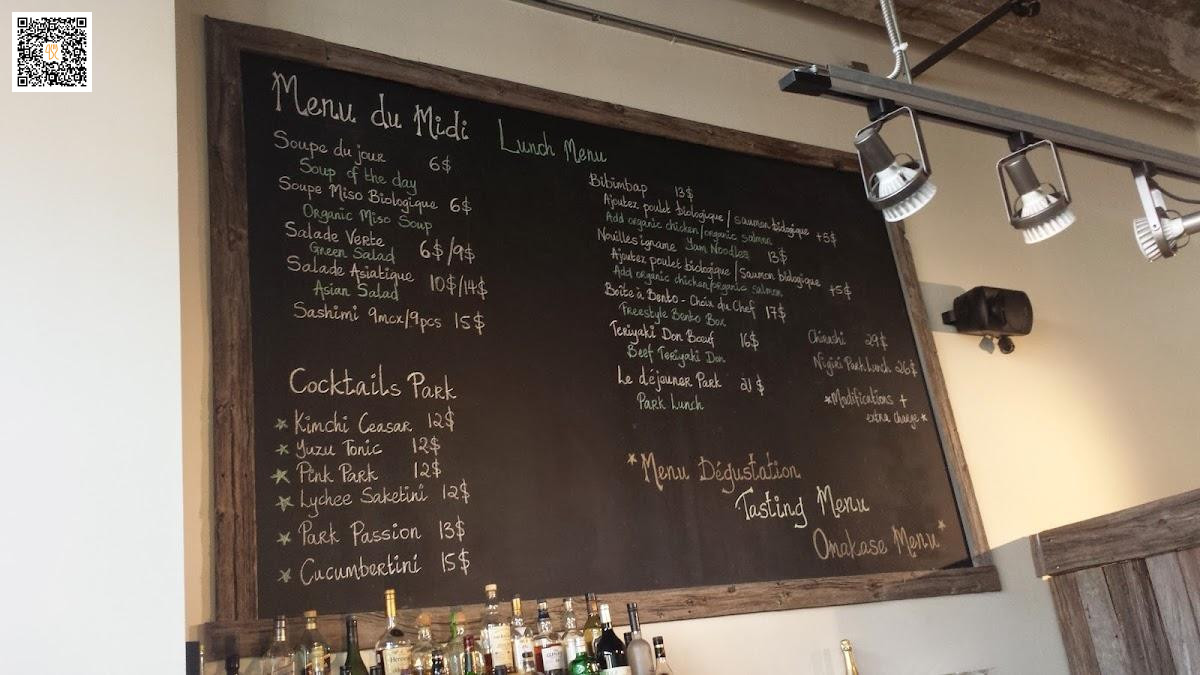 Menu du Midi
Lunch Menu
Soupe du jour 6$
Soup of the day
Soupe Miso Biologique 6$
Organic Miso Soup
Salade Verte
Green Salad 6$/9$
Salade Asiatique 10$/14$
Asian Salad
Sashimi 9mcx/9pcs 15$
Cocktails Park
Kimchi Ceasar 12$
Yuzu Tonic 12$
Pink Park 12$
Lychee Saketini 12$
Park Passion 13$
Cucumbertini 15$
Bibimbap 13$
Ajoutez poulet biologique / saumon biologique +5$
Add organic chicken/organic salmon
Nouilles igname Yam Noodles 13$
Ajoutez poulet biologique / Saumon biologique +5$
Add organic chicken/organic salmon
Boîte à Bento - Choix du Chef 17$
Freestyle Bento Box
Teriyaki Don Bœuf 16$
Beef Teriyaki Don
Le déjeuner Park 21$
Park Lunch
Chirashi 29$
Nigiri Park Lunch 26$
*Modifications +
extra charge*
*Menu Dégustation
Tasting Menu
Omakase Menu*